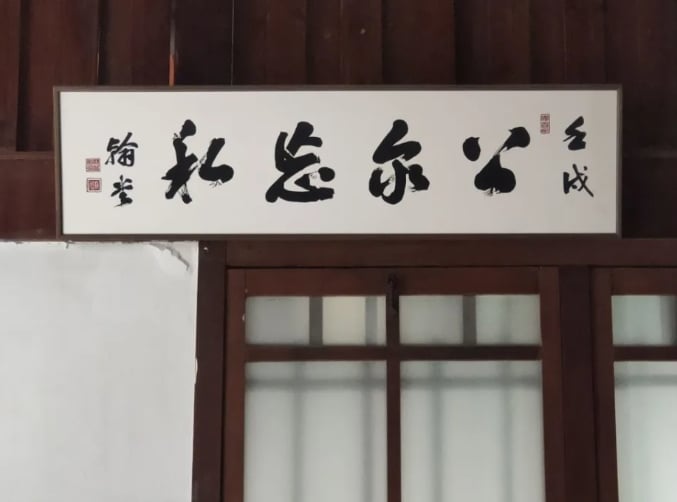 壬戌
公尔忘私
翰堂